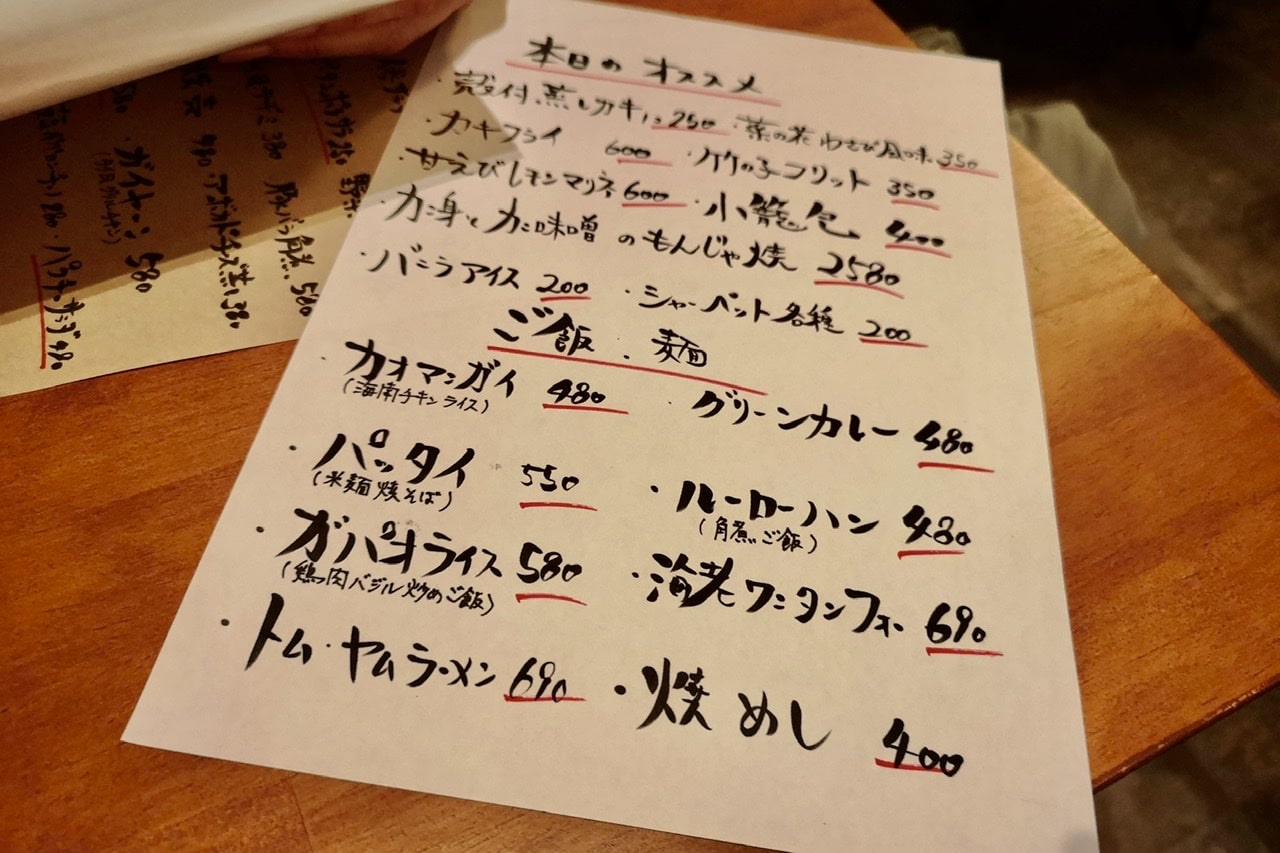 本日のオススメ
・殻付蒸しカキ1コ250 ・菜の花わさび風味350
・カキフライ 600 ・竹の子フリット 350
・甘えびレモンマリネ600 ・小籠包 400
・カニ身とカニ味噌のもんじゃ焼 2580
・バニラアイス 200 ・シャーベット各種 200
ご飯・麺
・カオマンガイ 480 ・グリーンカレー 480
(海南チキンライス)
・パッタイ 550 ・ルーローハン 480
(米麺焼そば) (角煮ご飯)
・ガパオライス 580 ・海老ワンタンフォー 690
(鶏肉バジル炒めご飯)
・トム・ヤムラーメン 690 ・焼めし 400
豚バラ角煮 580
980 アボカドチーズ蒸し 380
ガイヤーン 580